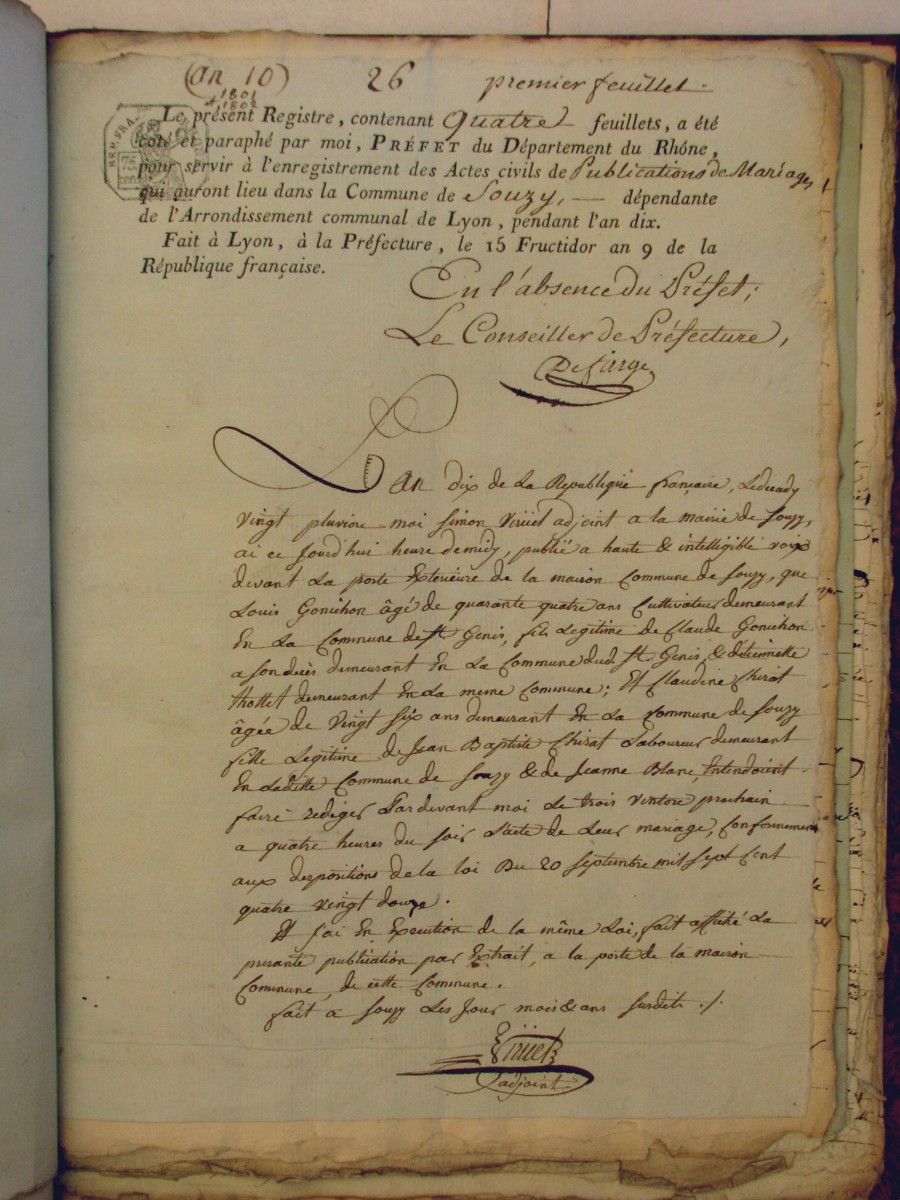 (An 10) 26 premier feuillet.
1801
et 1802
REP. FRA.
75
cent
Le présent Registre, contenant Quatre feuillets, a été
coté et paraphé par moi, PRÉFET du Département du Rhône,
pour servir à l'enregistrement des Actes civils de Publications de Mariages
qui auront lieu dans la Commune de Souzy, — dépendante
de l'Arrondissement communal de Lyon, pendant l'an dix.
Fait à Lyon, à la Préfecture, le 15 Fructidor an 9 de la
République française.
En l'absence du Préfet;
Le Conseiller de Préfecture,
L'An dix de La Republique française, Le decady
vingt pluviose moi Simon Viriiel adjoint a la mairie de Souzy,
ai ce jourd'hui heure de midy, publié a haute & intelligible voix
devant La porte exterieure de la maison Commune de Souzy, que
Louis Gonichon âgé de quarante quatre ans Cultivateur demeurant
En La Commune de St Genis, fils Legitime de Claude Gonichon
a son décès demeurant En La Commune dud. St. Genis, & d'étiennette
thollet demeurant En La meme Commune; Et Claudine Chirat
âgée de vingt six ans demeurant En La Commune de Souzy
fille Légitime de Jean Baptiste Chirat Laboureur demeurant
En Ladite Commune de Souzy & de Jeanne Blanc, Entendoient
faire rediger Pardevant moi Le trois ventose prochain
a quatre heures du soir L'acte de Leur mariage, Conformement
aux dispositions de la loi Du 20 septembre mil sept Cent
quatre vingt douze.
Et j'ai En Execution de la même Loi, fait affiché La
presante publication par Extrait, a la porte de la maison
Commune, de cette Commune.
fait a Souzy Les Jour mois & ans susdits ./.
adjoint